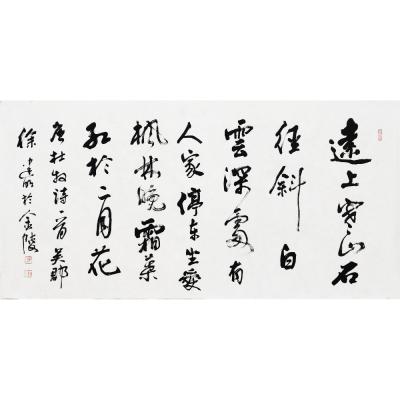 遠上寒山石
徑斜白
雲深處有
人家停車坐愛
楓林晚霜葉
紅於二月花
唐杜牧詩一首吴郡
徐於金陵